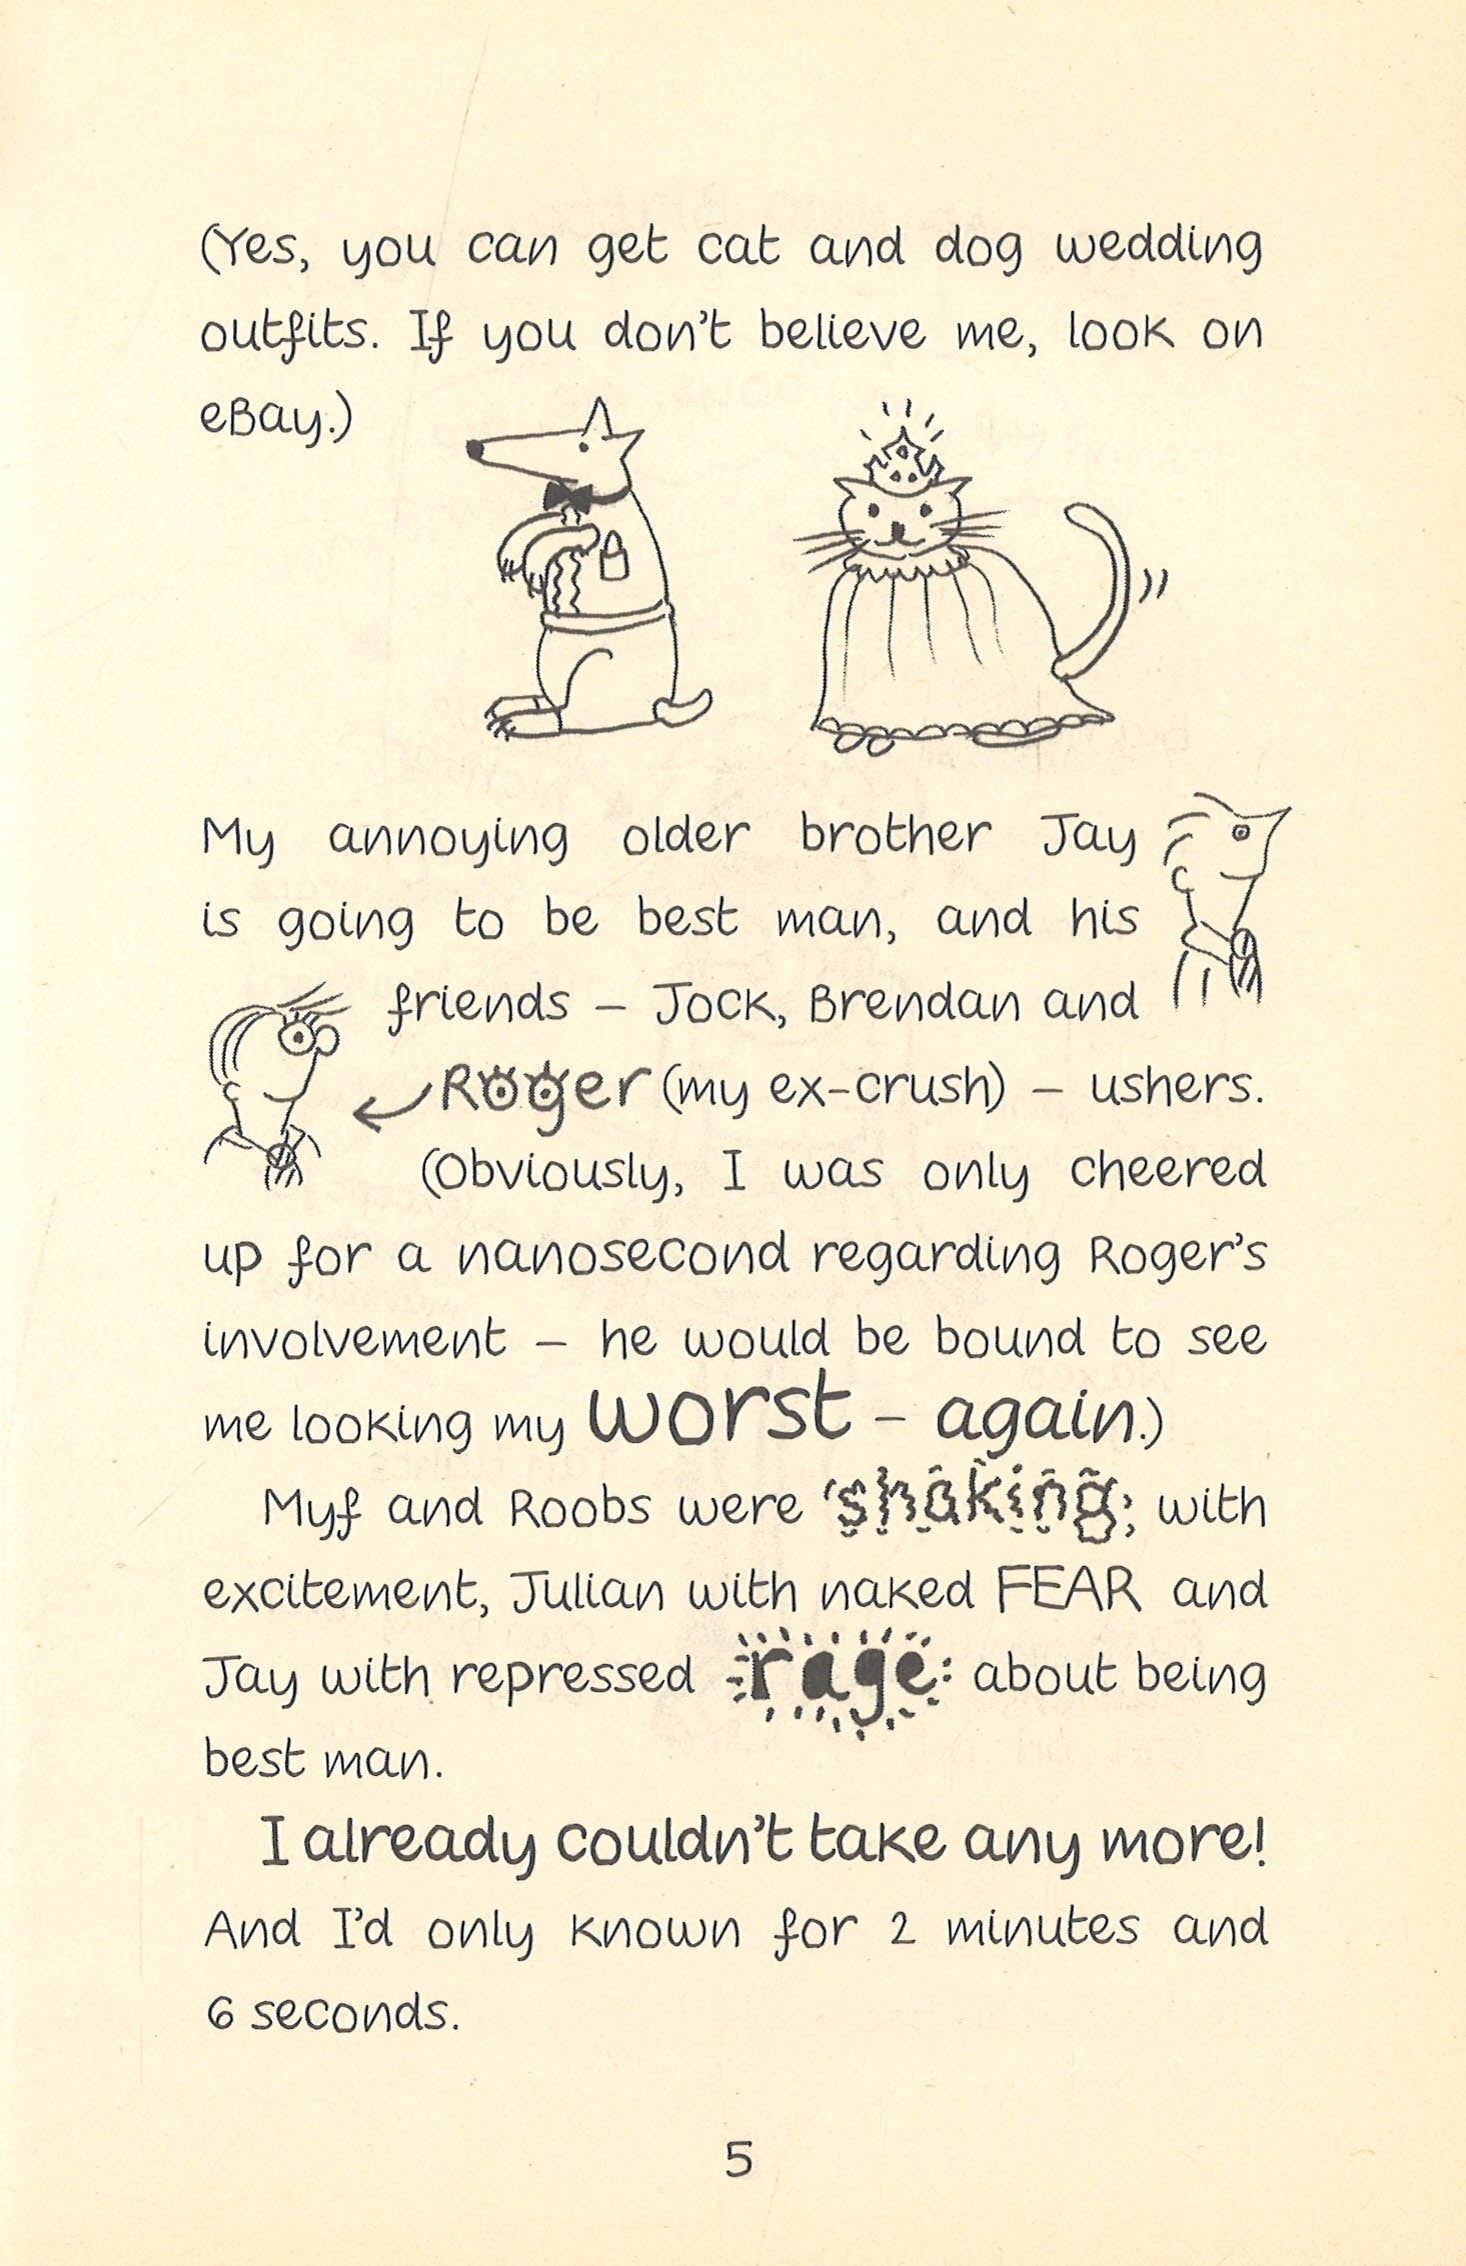 (Yes, you can get cat and dog wedding
outfits. If you don't believe me, look on
eBay.)
My annoying older brother Jay
is going to be best man, and his
friends – Jock, Brendan and
Roger (my ex-crush) – ushers.
(Obviously, I was only cheered
up for a nanosecond regarding Roger's
involvement – he would be bound to see
me looking my worst – again.)
Myf and Roobs were shaking with
excitement, Julian with naked FEAR and
Jay with repressed rage about being
best man.
I already couldn't take any more!
And I'd only known for 2 minutes and
6 seconds.
5